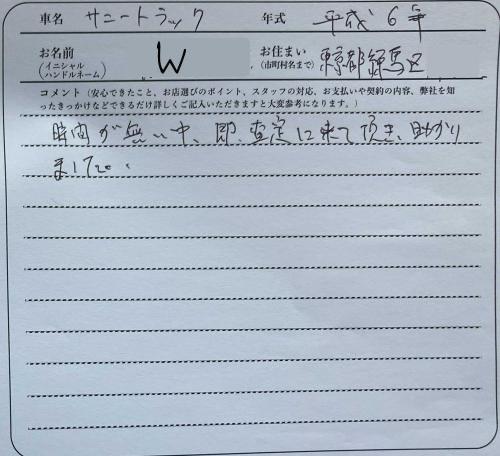 車名 サニートラック 年式 平成6年
お名前 (イニシャル ハンドルネーム) W お住まい (市町村名まで) 東京都練馬区
コメント（安心できたこと、お店選びのポイント、スタッフの対応、お支払いや契約の内容、弊社を知
ったきっかけなどできるだけ詳しくご記入いただきますと大変参考になります。）
時間が無い中、即、査定に来て頂き、助かり
ました。